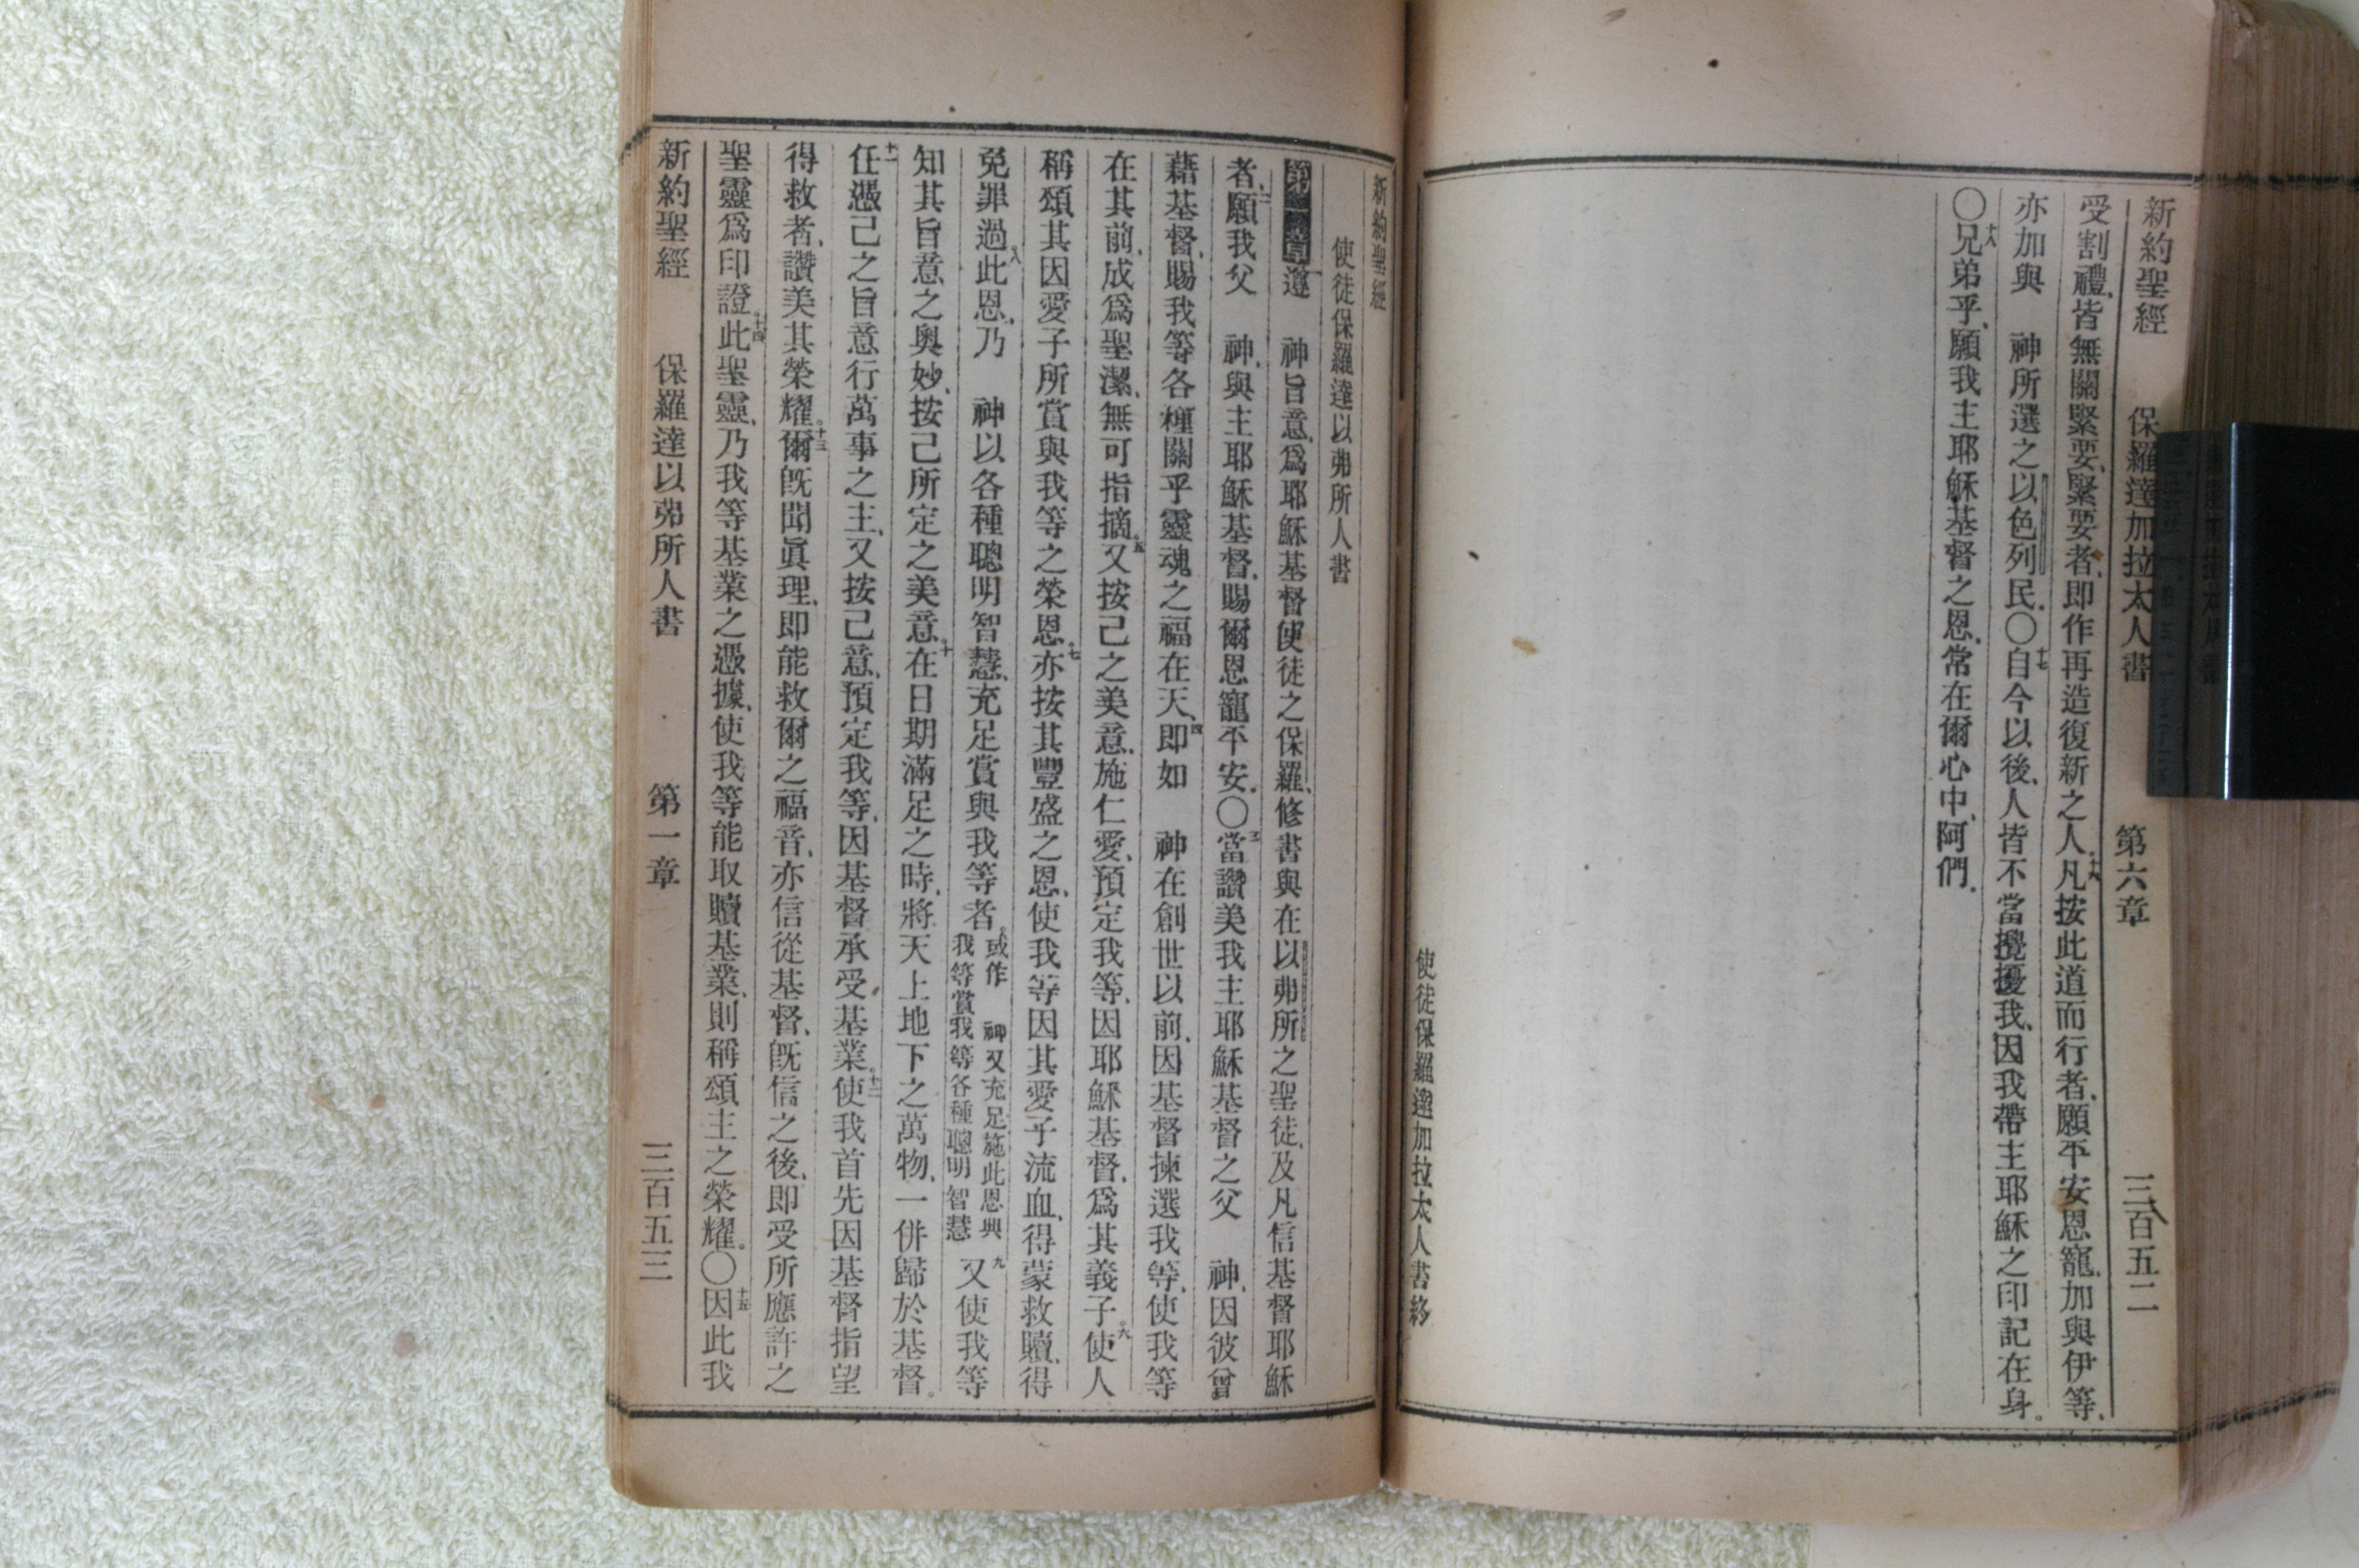 新約聖經 保羅達加拉太人書 第六章 三百五二
受割禮、皆無關緊要、緊要者、卽作再造復新之人。十六凡按此道而行者、願平安恩寵、加與伊等、
亦加與 神所選之以色列民。〇十七自今以後、人皆不當攪擾我、因我帶主耶穌之印記在身。
〇十八兄弟乎、願我主耶穌基督之恩、常在爾心中、阿們。
使徒保羅達加拉太人書終
新約聖經
使徒保羅達以弗所人書
第一章 一遵 神旨意、爲耶穌基督使徒之保羅、修書與在以弗所之聖徒、及凡信基督耶穌
者、二願我父 神、與主耶穌基督、賜爾恩寵平安。〇三當讚美我主耶穌基督之父 神、因彼曾
藉基督、賜我等各種關乎靈魂之福在天、四卽如 神在創世以前、因基督揀選我等、使我等
在其前、成爲聖潔、無可指摘。五又按己之美意、施仁愛、預定我等、因耶穌基督、爲其義子、六使人
稱頌其因愛子所賞與我等之榮恩。七亦按其豐盛之恩、使我等因其愛子流血、得蒙救贖、得
免罪過、八此恩、乃 神以各種聰明智慧、充足賞與我等者。或作 神又充足施此恩與我等賞我等各種聰明智慧 九又使我等
知其旨意之奧妙、按己所定之美意、十在日期滿足之時、將天上地下之萬物、一併歸於基督。
十一任憑己之旨意行萬事之主、又按己意、預定我等、因基督承受基業。十二使我首先因基督指望
得救者、讚美其榮耀。十三爾旣聞眞理、卽能救爾之福音、亦信從基督、旣信之後、卽受所應許之
聖靈爲印證。十四此聖靈、乃我等基業之憑據、使我等能取贖基業、則稱頌主之榮耀。〇十五因此我
新約聖經 保羅達以弗所人書 第一章 三百五三